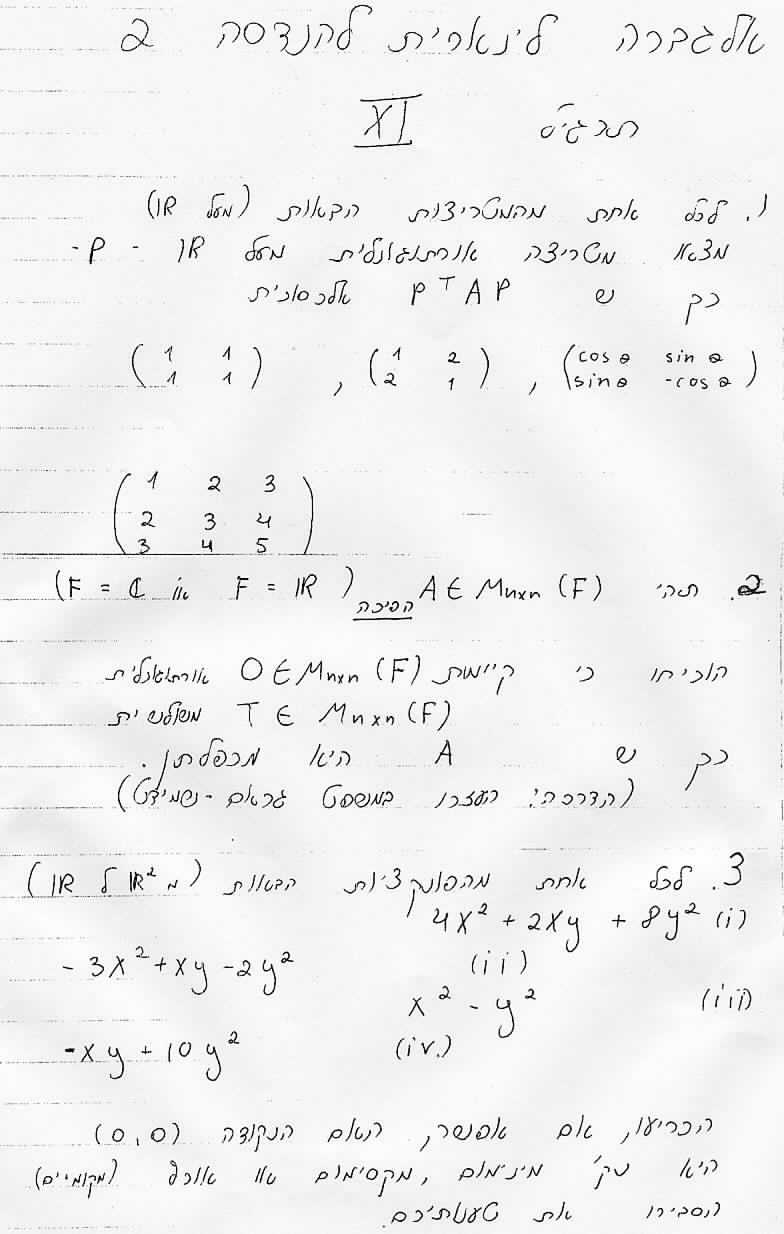 אלגברה לינארית להנדסה 2
תרגיל XI
1. לכל אחת מהמטריצות הבאות (מעל IR)
מצאו מטריצה אורתוגונלית מעל IR - P -
כך ש P^T A P אלכסונית
(1 1 , (1 2 , (cos θ sin θ
1 1) 2 1) sin θ -cos θ)
(1 2 3
2 3 4
3 4 5)
2. תהי A ∈ Mnxn (F) הפיכה (F = IR או F = ℂ)
הוכיחו כי קיימת O ∈ Mnxn (F) אורתוגונלית
T ∈ Mnxn (F) משולשית
כך ש A היא מכפלתן.
(הדרכה: העזרו במשפט גראם - שמידט)
3. לכל אחת מהפונקציות הבאות (מ IR² ל IR)
(i) 4x² + 2xy + 8y²
(ii) -3x² + xy - 2y²
(iii) x² - y²
(iv.) -xy + 10y²
הכריעו, אם אפשר, האם הנקודה (0,0)
היא נק' מינימום, מקסימום או אוכף (מקומיים)
הסבירו את טענותיכם.